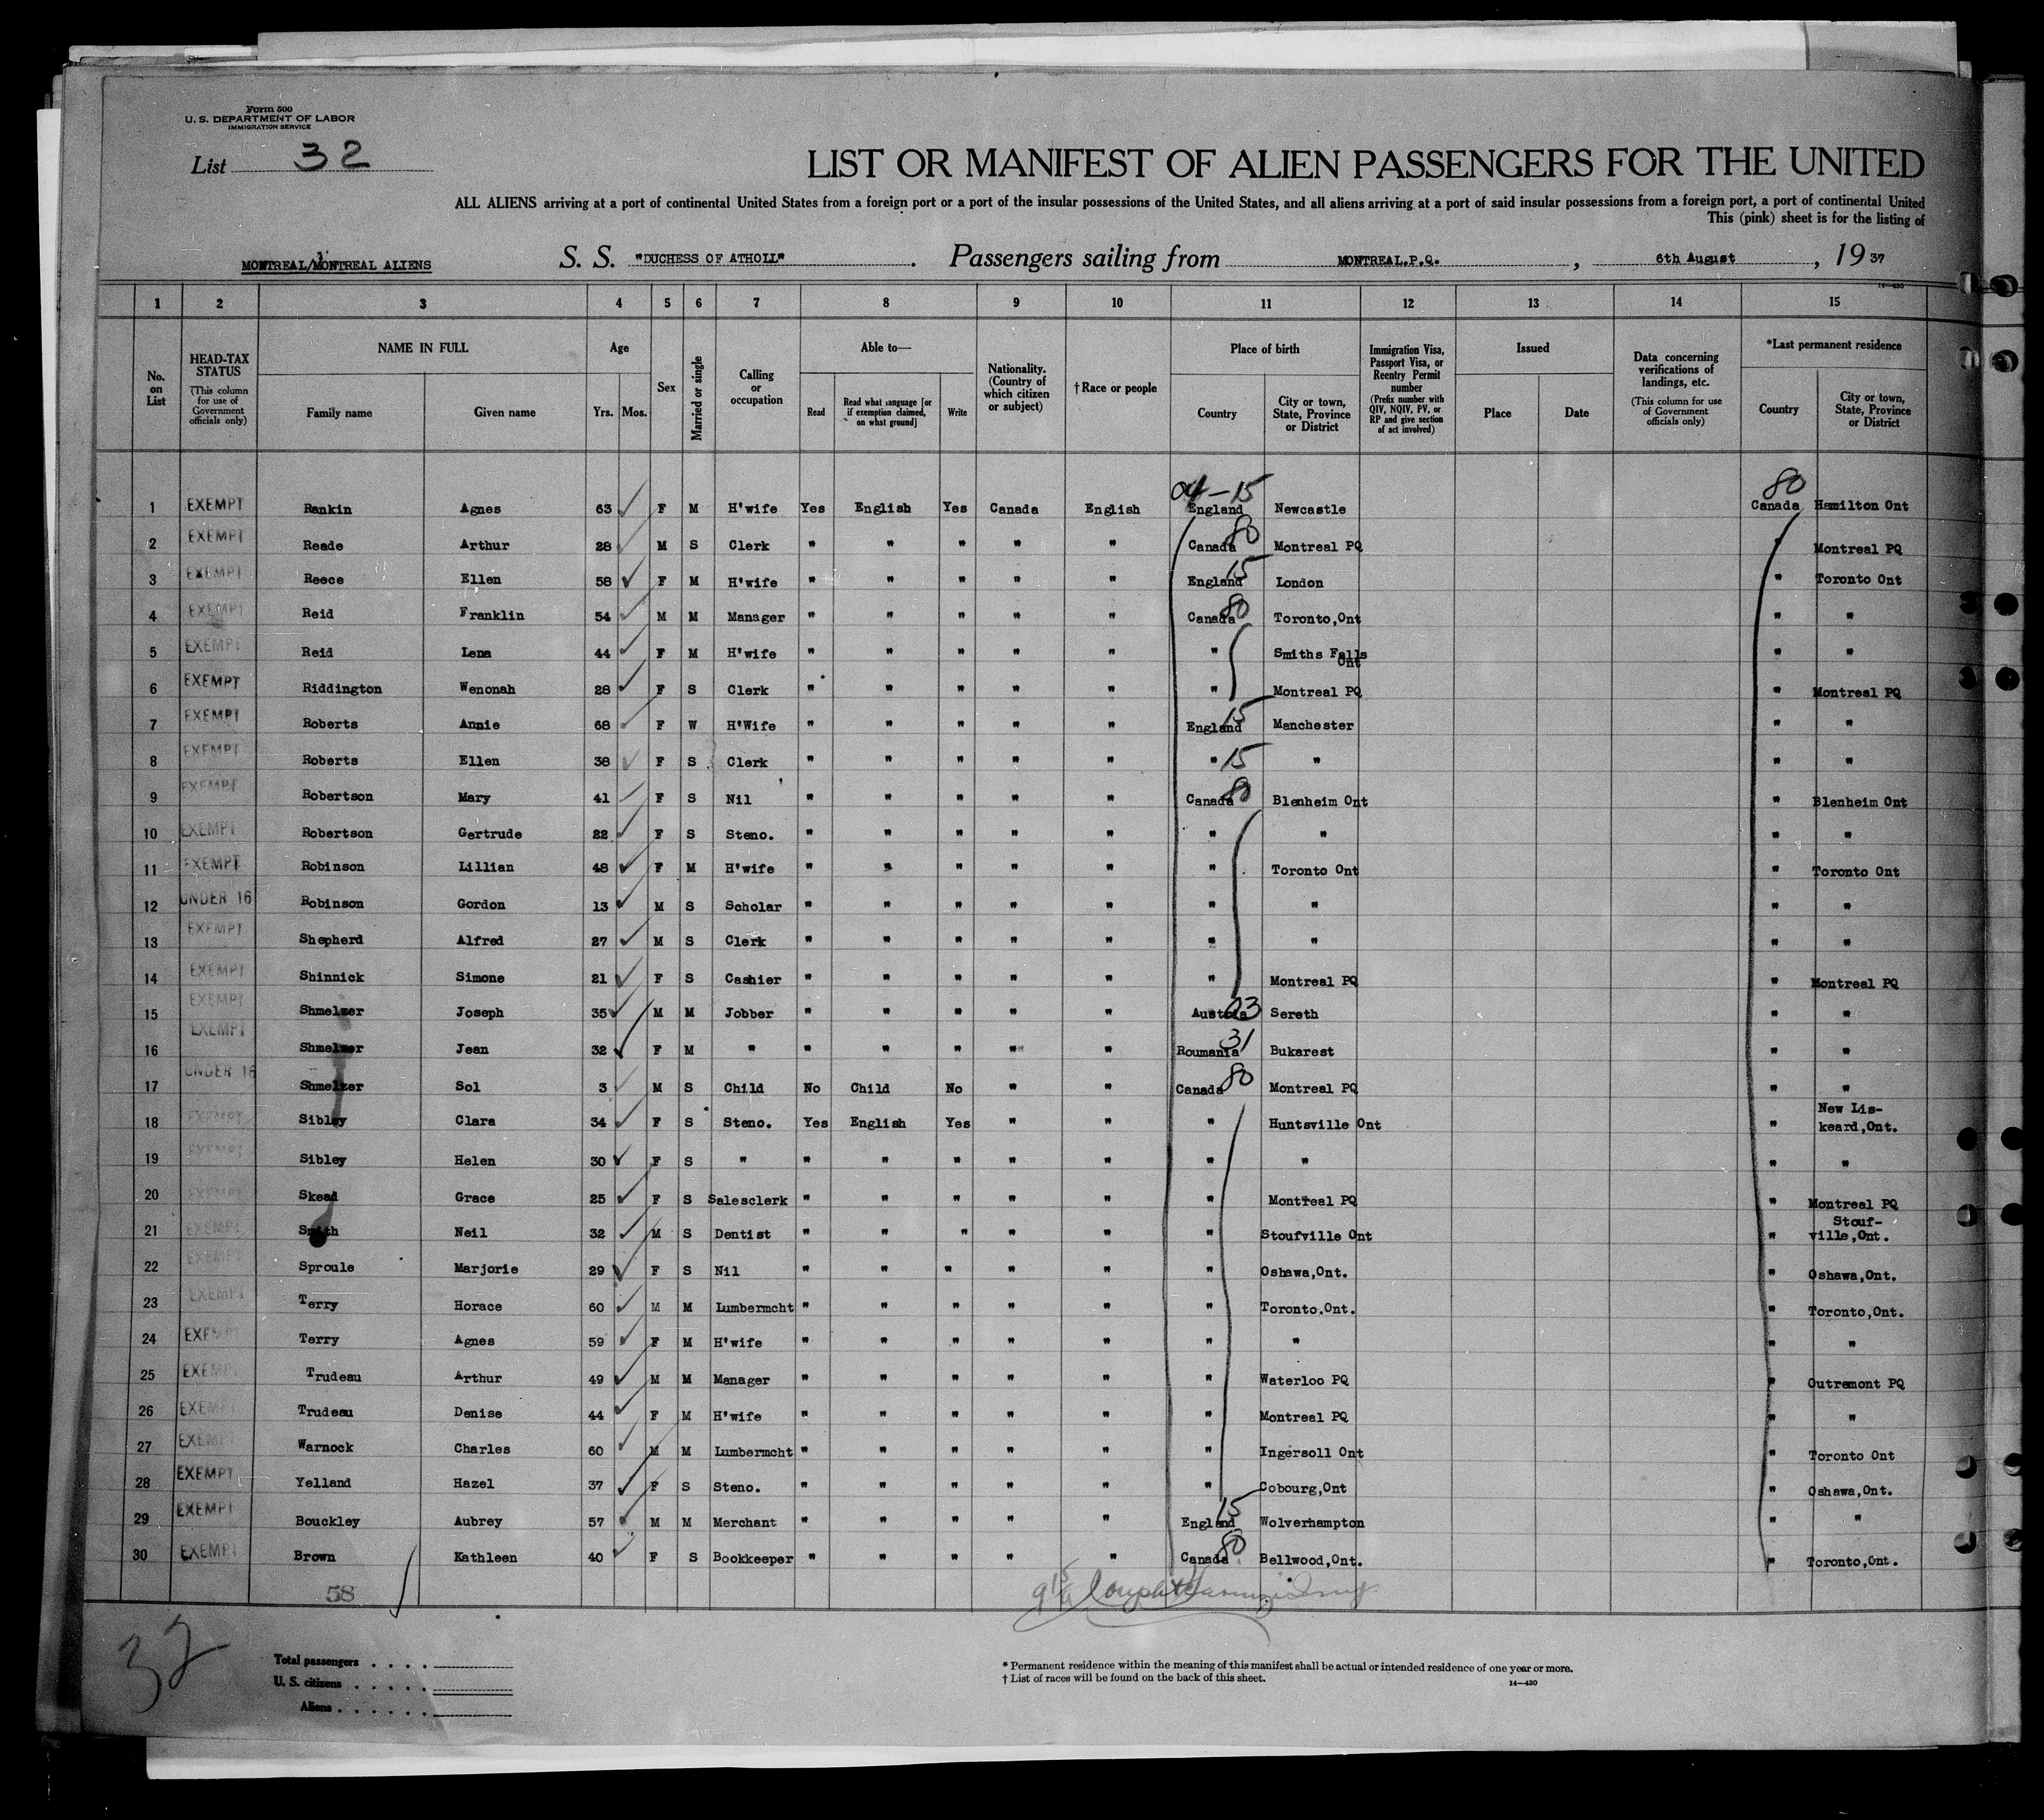 Form 500
U. S. DEPARTMENT OF LABOR
IMMIGRATION SERVICE
List 32
LIST OR MANIFEST OF ALIEN PASSENGERS FOR THE UNITED
ALL ALIENS arriving at a port of continental United States from a foreign port or a port of the insular possessions of the United States, and all aliens arriving at a port of said insular possessions from a foreign port, a port of continental United
This (pink) sheet is for the listing of
MONTREAL/MONTREAL ALIENS S. S. "DUCHESS OF ATHOLL" . Passengers sailing from MONTREAL.P.Q. , 6th August , 19 37
14—430
1 2 3 4 5 6 7 8 9 10 11 12 13 14 15
No. on List
HEAD-TAX STATUS (This column for use of Government officials only)
NAME IN FULL
Family name
Given name
Age
Yrs. Mos.
Sex
Married or single
Calling or occupation
Able to—
Read
Read what language [or if exemption claimed, on what ground]
Write
Nationality. (Country of which citizen or subject)
† Race or people
Place of birth
Country
City or town, State, Province or District
Immigration Visa, Passport Visa, or Reentry Permit number (Prefix number with QIV, NQIV, PV, or RP and give section of act involved)
Issued
Place
Date
Data concerning verifications of landings, etc. (This column for use of Government officials only)
*Last permanent residence
Country
City or town, State, Province or District
04-15 80
1 EXEMPT Rankin Agnes 63 F M H'wife Yes English Yes Canada English England Newcastle Canada Hamilton Ont
2 EXEMPT Reade Arthur 28 M S Clerk " " " " " Canada 80 Montreal PQ " Montreal PQ
3 EXEMPT Reece Ellen 58 F M H'wife " " " " " England 15 London " Toronto Ont
4 EXEMPT Reid Franklin 54 M M Manager " " " " " Canada 80 Toronto,Ont " "
5 EXEMPT Reid Lena 44 F M H'wife " " " " " " Smiths Falls Ont " "
6 EXEMPT Riddington Wenonah 28 F S Clerk " " " " " " Montreal PQ " Montreal PQ
7 EXEMPT Roberts Annie 68 F W H'Wife " " " " " England 15 Manchester " "
8 EXEMPT Roberts Ellen 38 F S Clerk " " " " " " 15 " " "
9 EXEMPT Robertson Mary 41 F S Nil " " " " " Canada 80 Blenheim Ont " Blenheim Ont
10 EXEMPT Robertson Gertrude 22 F S Steno. " " " " " " " " "
11 EXEMPT Robinson Lillian 48 F M H'wife " " " " " " Toronto Ont " Toronto Ont
12 UNDER 16 Robinson Gordon 13 M S Scholar " " " " " " " " "
13 EXEMPT Shepherd Alfred 27 M S Clerk " " " " " " " " "
14 EXEMPT Shinnick Simone 21 F S Cashier " " " " " " Montreal PQ " Montreal PQ
15 EXEMPT Shmelzer Joseph 35 M M Jobber " " " " " Austria 23 Sereth " "
16 EXEMPT Shmelzer Jean 32 F M " " " " " " Roumania 31 Bukarest " "
17 UNDER 16 Shmelzer Sol 3 M S Child No Child No " " Canada 80 Montreal PQ " "
18 EXEMPT Sibley Clara 34 F S Steno. Yes English Yes " " " Huntsville Ont " New Lis-
keard,Ont.
19 EXEMPT Sibley Helen 30 F S " " " " " " " " " "
20 EXEMPT Skead Grace 25 F S Salesclerk " " " " " " Montreal PQ " Montreal PQ
21 EXEMPT Smith Neil 32 M S Dentist " " " " " " Stoufville Ont " Stouf-
ville,Ont.
22 EXEMPT Sproule Marjorie 29 F S Nil " " " " " " Oshawa,Ont. " Oshawa,Ont.
23 EXEMPT Terry Horace 60 M M Lumbermcht " " " " " " Toronto.Ont. " Toronto,Ont.
24 EXEMPT Terry Agnes 59 F M H'wife " " " " " " " " "
25 EXEMPT Trudeau Arthur 49 M M Manager " " " " " " Waterloo PQ " Outremont PQ
26 EXEMPT Trudeau Denise 44 F M H'wife " " " " " " Montreal PQ " "
27 EXEMPT Warnock Charles 60 M M Lumbermcht " " " " " " Ingersoll Ont " Toronto Ont
28 EXEMPT Yelland Hazel 37 F S Steno. " " " " " " Cobourg,Ont " Oshawa,Ont.
29 EXEMPT Bouckley Aubrey 57 M M Merchant " " " " " England 15 Wolverhampton " "
30 EXEMPT Brown Kathleen 40 F S Bookkeeper " " " " " Canada 80 Bellwood,Ont. " Toronto,Ont.
58
32
Total passengers . . . .
U. S. citizens . . . . .
Aliens . . . . . .
* Permanent residence within the meaning of this manifest shall be actual or intended residence of one year or more.
† List of races will be found on the back of this sheet.
14—430